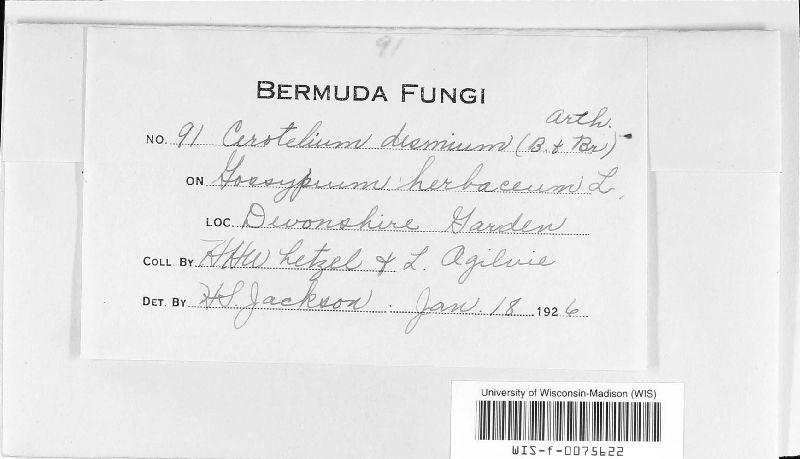 91
BERMUDA FUNGI
NO. 91 Cerotelium desmium (B. & Br) Arth.
ON Gossypium herbaceum L.
LOC. Devonshire Garden
COLL. BY HHWhetzel & L. Ogilvie
DET. BY HS. Jackson. Jan. 18 1926
University of Wisconsin-Madison (WIS)
WIS-f-0075622